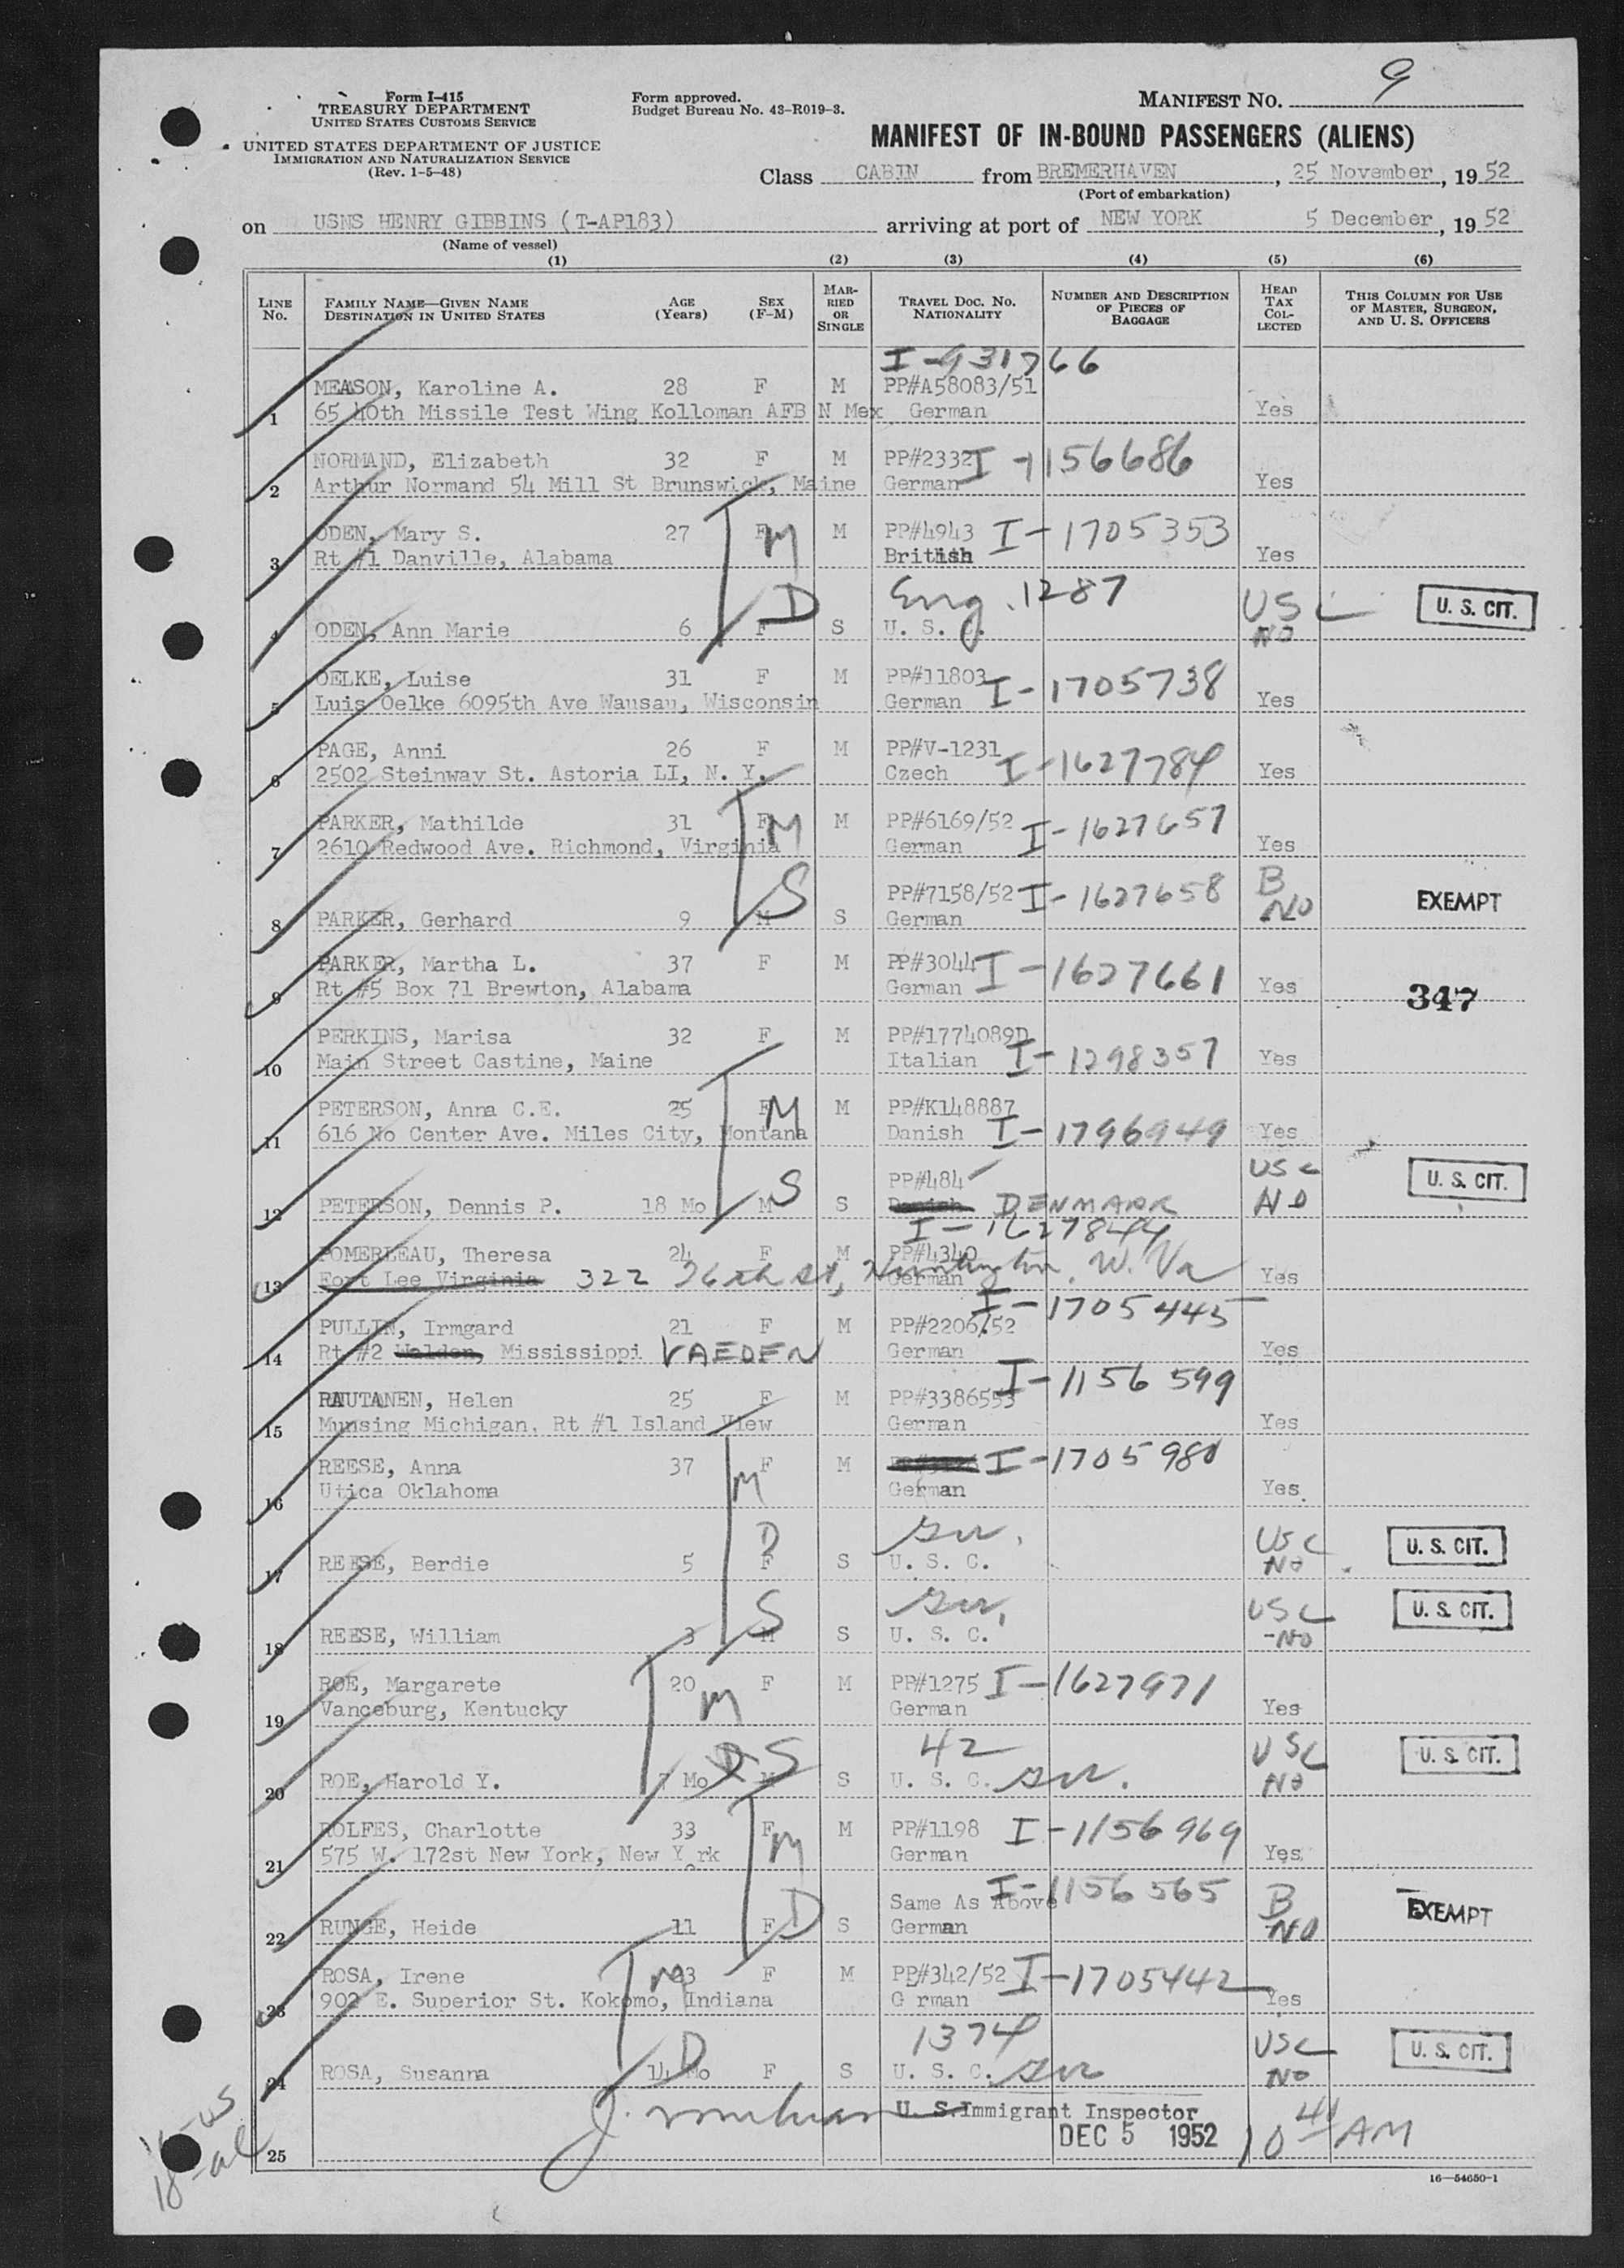 9
Form I-415
TREASURY DEPARTMENT
UNITED STATES CUSTOMS SERVICE
UNITED STATES DEPARTMENT OF JUSTICE
IMMIGRATION AND NATURALIZATION SERVICE
(Rev. 1-5-48)
Form approved.
Budget Bureau No. 43-R019-3.
MANIFEST NO.
MANIFEST OF IN-BOUND PASSENGERS (ALIENS)
Class CABIN from BREMERHAVEN, 25 November, 1952
(Port of embarkation)
on USNS HENRY GIBBINS (T-AP183) arriving at port of NEW YORK 5 December, 1952
(Name of vessel)
(1) (2) (3) (4) (5) (6)
LINE NO. FAMILY NAME—GIVEN NAME DESTINATION IN UNITED STATES AGE (YEARS) SEX (F-M) MARRIED OR SINGLE TRAVEL DOC. NO. NATIONALITY NUMBER AND DESCRIPTION OF PIECES OF BAGGAGE HEAD TAX COLLECTED THIS COLUMN FOR USE OF MASTER, SURGEON, AND U. S. OFFICERS
I-931766
MEASON, Karoline A. 28 F M PP#A58083/51
1 65 40th Missile Test Wing Kolloman AFB N Mex German Yes
NORMAND, Elizabeth 32 F M PP#2332 I-1156686
2 Arthur Normand 54 Mill St Brunswick, Maine German Yes
ODEN, Mary S. 27 F M M PP#4943 I-1705353
3 Rt #1 Danville, Alabama British Yes
D Eng. 1287 USC U. S. CIT.
4 ODEN, Ann Marie 6 F S U. S. C. NO
OELKE, Luise 31 F M PP#11803 I-1705738
5 Luis Oelke 6095th Ave Wausau, Wisconsin German Yes
PAGE, Anni 26 F M PP#V-1231
6 2502 Steinway St. Astoria LI, N. Y. Czech I-1627784 Yes
PARKER, Mathilde 31 F M M PP#6169/52 I-1627657
7 2610 Redwood Ave. Richmond, Virginia German Yes
S PP#7158/52 I-1627658 B EXEMPT
8 PARKER, Gerhard 9 M S German NO
PARKER, Martha L. 37 F M PP#3044 I-1627661
9 Rt #5 Box 71 Brewton, Alabama German Yes 347
PERKINS, Marisa 32 F M PP#1774089D
10 Main Street Castine, Maine Italian I-1298357 Yes
PETERSON, Anna C.E. 25 F M M PP#K148887
11 616 No Center Ave. Miles City, Montana Danish I-1796949 Yes
S PP#484 USC U. S. CIT.
12 PETERSON, Dennis P. 18 Mo M S DENMARK NO
I-1627844
POMERLEAU, Theresa 24 F M PP#4340
13 Fort Lee Virginia 322 26th St, Huntington, W. Va German Yes
I-1705445
PULLIN, Irmgard 21 F M PP#2206/52
14 Rt #2 Walden, Mississippi VAEDEN German Yes
I-1156599
RAUTANEN, Helen 25 F M PP#3386553
15 Munsing Michigan, Rt #1 Island View German Yes
REESE, Anna 37 F M M I-1705980
16 Utica Oklahoma German Yes
D USC U. S. CIT.
17 REESE, Berdie 5 F S U. S. C. NO
S USC U. S. CIT.
18 REESE, William 3 M S U. S. C. NO
ROE, Margarete 20 F M M PP#1275 I-1627971
19 Vanceburg, Kentucky German Yes
S 42 USC U. S. CIT.
20 ROE, Harold Y. 7 Mo M S U. S. C. NO
ROLFES, Charlotte 33 F M M PP#1198 I-1156969
21 575 W. 172st New York, New Y rk German Yes
D Same As Above I-1156565 B EXEMPT
22 RUNGE, Heide 11 F S German NO
ROSA, Irene 23 M F M PP#342/52 I-1705442
23 902 E. Superior St. Kokomo, Indiana G rman Yes
D 1374 USC U. S. CIT.
24 ROSA, Susanna 14 Mo F S U. S. C. NO
U. S. Immigrant Inspector
25 DEC 5 1952 10 40 AM
16—54650-1